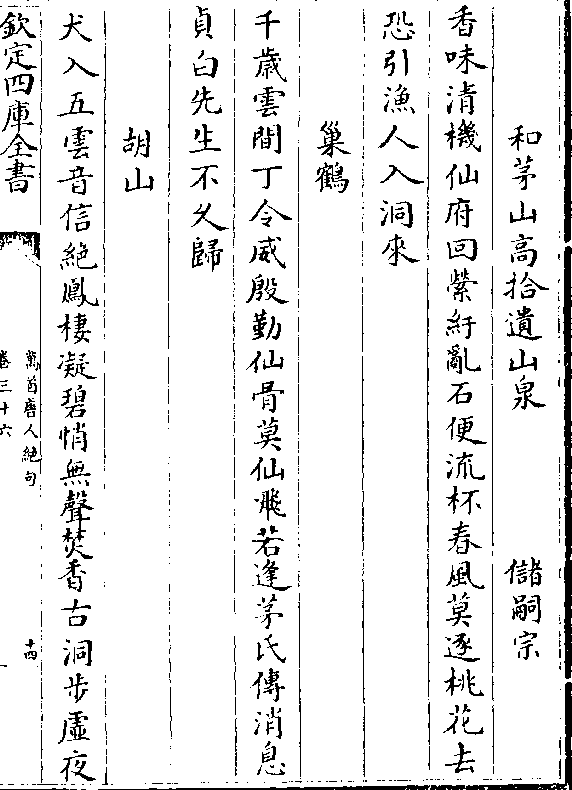 和茅山高拾遺山泉　儲嗣宗
香味清機仙府回縈紆亂石便流杯春風莫逐桃花去
恐引漁人入洞來
巢鶴
千歲雲間丁令威殷勤仙骨莫仙飛若逢茅氏傳消息
貞白先生不久歸
胡山
犬入五雲音信絶鳳棲凝碧悄無聲焚香古洞步虛夜
欽定四庫全書
萬首唐人絶句
卷三十六
十四